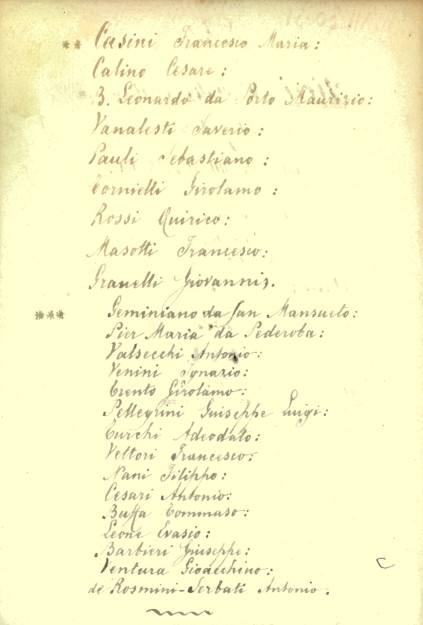 ** Casini Francesco Maria:
Calino Cesare:
B. Leonardo da Porto Maurizio:
Vanalesti Saverio:
Pauli Sebastiano:
Cornielli Girolamo:
Rossi Quirico:
Masotti Francesco:
Granelli Giovanni.
*** Geminiano da San Mansueto:
Pier Maria da Pederoba:
Valsecchi Antonio:
Venini Ignazio:
Trento Girolamo:
Pellegrini Guiseppe Luigi:
Turchi Adeodato:
Vettori Francesco:
Nani Filippo:
Cesari Antonio:
Buffa Tommaso:
Leone Evasio:
Barbieri Giuseppe:
Ventura Gioacchino:
de Rosmini-Serbati Antonio.